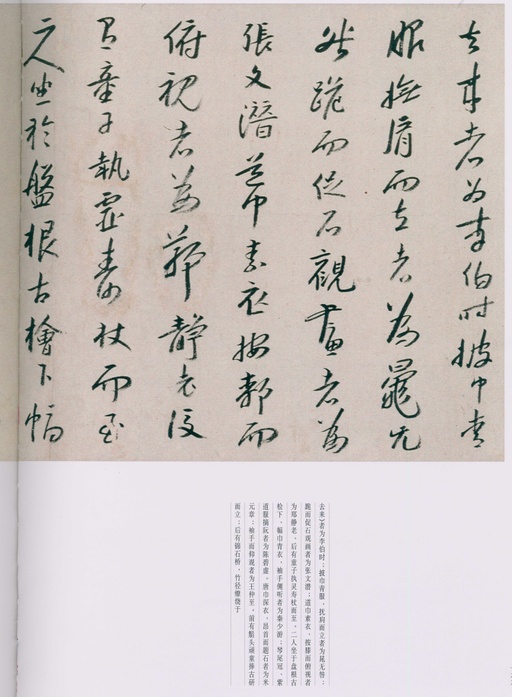 去来者为李伯时披巾青
服撫肩而立者為晁无
咎跪而促石觀畫者為
張文潛道巾素衣按郄而
俯視者為鄭靜老後
有童子執靈壽杖而至
二人坐於盤根古檜下幅
去来》者为李伯时；披巾青服，抚肩而立者为晁无咎；
跪而促石观画者为张文潜；道巾素衣，按膝而俯视者
为郑静老，后有童子执灵寿杖而至。二人坐于盘根古
桧下，幅巾青衣，袖手侧听者为秦少游；琴尾冠、紫
道服摘阮者为陈碧虚。唐巾深衣，昂首而题石者为米
元章；袖手而仰观者为王仲至。前有鬅头顽童捧古研
而立；后有锦石桥、竹径缭绕于